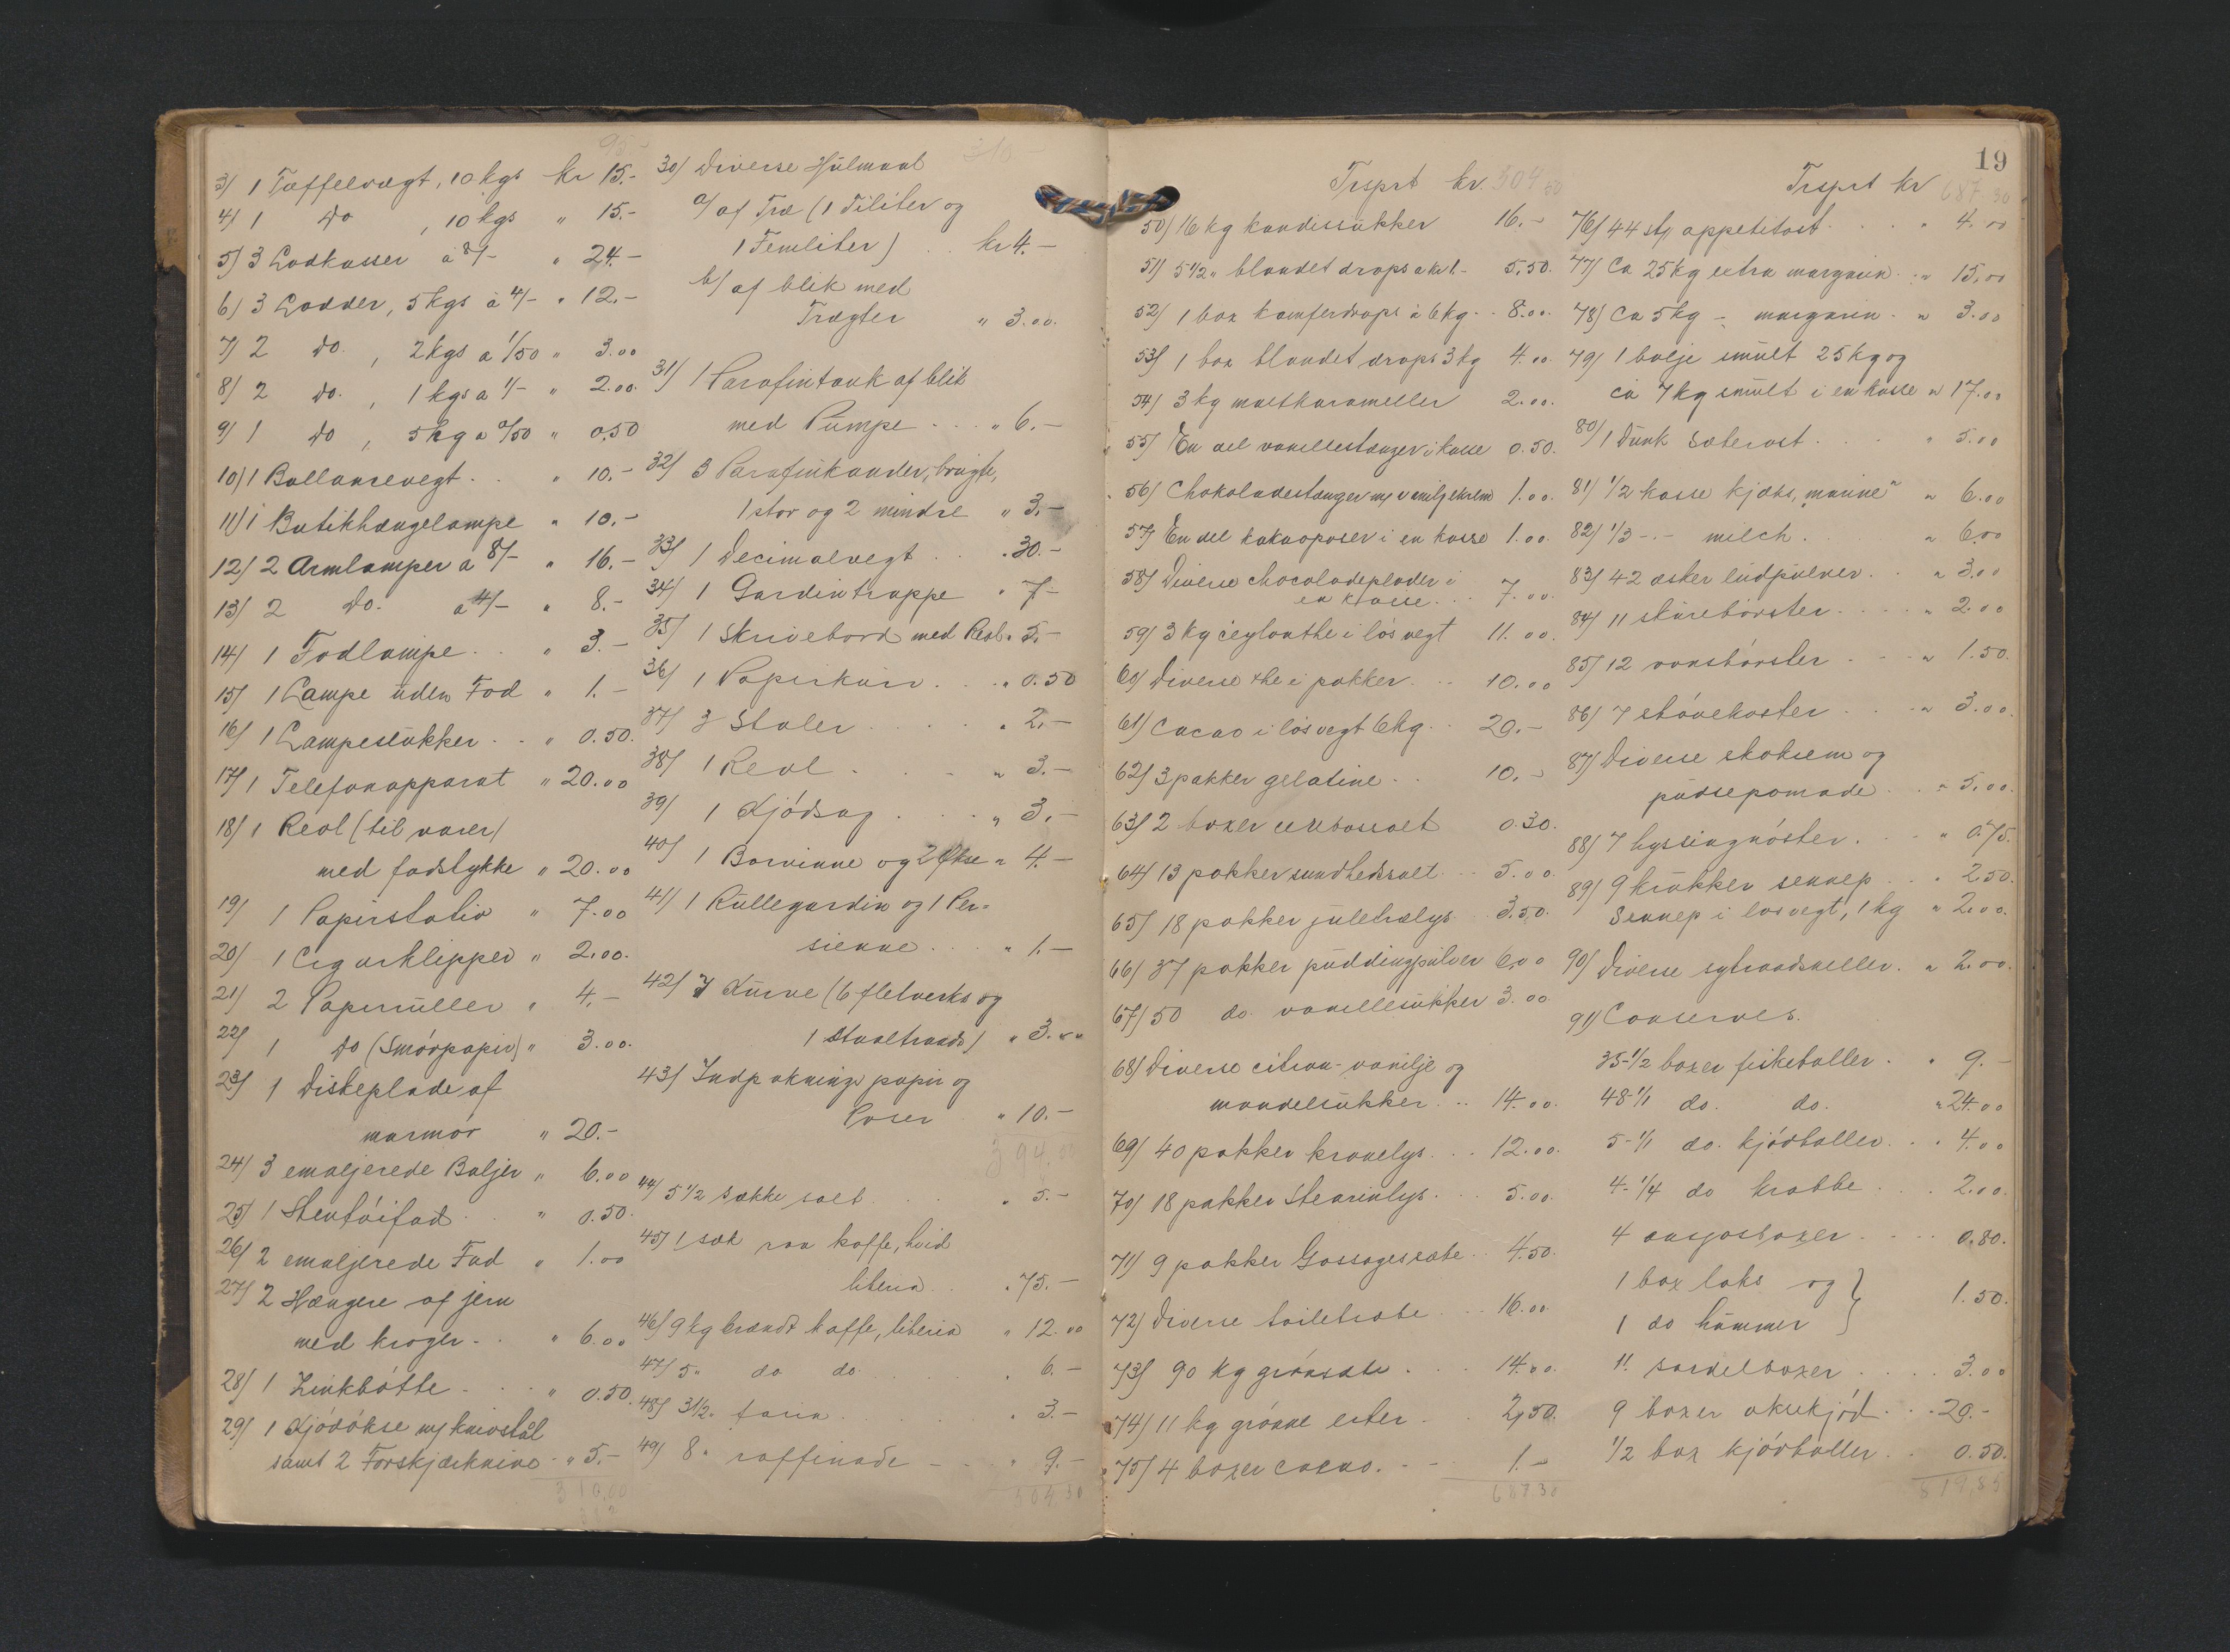 3/ 1 Taffelvægt, 10 kgs kr 15.-
4/ 1 do , 10 kgs " 15.-
5/ 3 Lodkasser à 8/- " 24.-
6/ 3 Lodder, 5 kgs à 4/- " 12.-
7/ 2 do. , 2 kgs a 1/50 " 3.00
8/ 2 do. , 1 kgs a 1/- " 2.00.
9/ 1 do , 5 hg a 0/50 " 0.50
10/ 1 Ballansevegt . . " 10.-
11/ 1 Butikhængelampe " 10.-
12/ 2 Armlamper a 8/- " 16.-
13/ 2 do. a 4/- " 8.-
14/ 1 Fodlampe . . " 3.-
15/ 1 Lampe uden Fod " 1.-
16/ 1 Lampeslukker . . " 0.50.
17/ 1 Telefonapparat " 20.00
18/ 1 Reol (til varer)
med fodstykke " 20.00
19/ 1 Papirstativ " 7.00
20/ 1 Cigarklipper " 2.00.
21/ 2 Papirruller " 4.-
22/ 1 do (Smörpapir) " 3.00.
23/ 1 Diskeplade af
marmor " 20.-
24/ 3 emaljerede Baljer " 6.00
25/ 1 Stentöifad . . " 0.50.
26/ 2 emaljerede Fad " 1.00
27/ 2 Hængere af jern
med kroger . . " 6.00
28/ 1 Zinkbötte . . . " 0.50.
29/ 1 Kjödökse m/ knivstål
samt 2 Forskjærknive . " 5.-
310.00
30/ Diverse Hulmaal
a/ af Træ (1 Tiliter og
1 Femliter) . . kr 4.-
b/ af blik med
Trægter " 3.00.
31/ 1 Parafintank af blik
med Pumpe . . . " 6.-
32/ 3 Parafinkander, brugte,
1 stor og 2 mindre " 3.-
33/ 1 Decimalvegt . . . 30.-
34/ 1 Gardintrappe " 7-
35/ 1 Skrivebord med Reol " 5.-
36/ 1 Papirkurv . . . " 0.50
37/ 3 Stoler . . . . " 2.-
38/ 1 Reol . . . . " 3.-
39/ 1 Kjödsag . . . . " 3.-
40/ 1 Borvinne og 2 Økse " 4.-
41/ 1 Rullegardin og 1 Per=
sienne . . . " 1.-
42/ 7 Kurve (6 fletverks og
1 Staaltraads) " 3.00
43/ Indpaknings papir og
Poser " 10.-
394.00
44/ 5 1/2 sække salt . . . " 5.-
45/ 1 sæk raa kaffe, hvid
liberia . . " 75.-
46/ 9 kg brændt kaffe, liberia " 12.00
47/ 5 " do do . . . . " 6.-
48/ 3 1/2 " farin . . . . " 3.-
49/ 8 " raffinade - . . " 9.-
504.30
Trsprt kr. 504.30
50/ 16 kg kandissukker 16.-
51/ 5 1/2 " blandet drops a kr 1.- 5.50.
52/ 1 box kamferdrops à 6 kg . . 8.00.
53/ 1 box blandet drops 3 kg 4.00.
54/ 3 kg maltkarameller 2.00.
55/ En del vanillestænger i kasse 0.50.
56/ Chokoladestænger m/ vaniljekrem 1.00.
57/ En del kakaoposer i en kasse 1.00.
58/ Diverse chocoladeplader i
en kasse . . . 7.00.
59/ 3 kg ceylonthe i lös vegt 11.00.
60/ Diverse the i pakker . . 10.00
61/ Cacao i lös vegt 6 kg . . 20.-
62/ 3 pakker gelatine . . 10.-
63/ 2 boxer 0.30.
64/ 13 pakker sundhedssalt . . 5.00.
65/ 18 pakker juletrælys . . 3.50.
66/ 37 pakker puddingpulver 6.00
67/ 50 do. vanillesukker 3.00
68/ Diverse citron- vanilje og
mandelsukker . . 14.00.
69/ 40 pakker kronelys . . . 12.00.
70/ 18 pakker Stearinlys . . . 5.00.
71/ 9 pakker Gossagessæbe . . 4.50.
72/ Diverse toiletsæbe . . . 16.00
73/ 90 kg grönsæbe . . . 14.00.
74/ 11 kg grönne erter . . . 2.50.
75/ 4 boxer cacao . - - 1.-
687.30
19
Trsprt kr 687.30
76/ 44 st/ appetitost . . . . " 4.00
77/ Ca 25 kg extra margarin . . " 15.00
78/ Ca 5 kg - margarin . " 3.00
79/ 1 balje smult 25 kg og
ca 7 kg smult i en kasse " 17.00
80/ 1 Dunk Sæterost . . . . " 5.00
81/ 1/2 kasse kjæks, "marine" " 6.00
82/ 1/3 -.- milch . " 6.00
83/ 42 æsker ludpulver . . " 3.00
84/ 11 skurebörster . . . . " 2.00
85/ 12 vanbörster . . - " 1.50.
86/ 7 stövekoster . . . " 3.00.
87/ Diverse skokrem og
pudsepomade . . " 5.00.
88/ 7 hyssingnöster . . " 0.75.
89/ 9 krukker sennep . . " 2.50.
Sennep i lösvegt, 1 kg " 2.00.
90/ Diverse sytraadsneller . " 2.00.
91/ Conserves.
35-1/2 boxer fiskeboller . " 9.-
48-1/1 do. do. " 24.00
5-1/1 do. kjödboller . . " 4.00
4-1/4 do krabbe . . . 2.00.
4 ansjosboxer . . . . 0.80.
1 box laks og }
1 do hummer } 1.50.
11. sardelboxer . . . . 3.00
9 boxer oksekjöd . . . 20.-
1/2 box kjödboller . . 0.50.
819.85